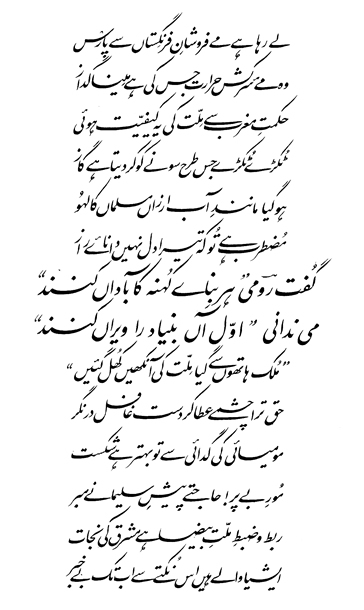 لے رہا ہے مے فروشانِ فرنگستاں سے پارس
وہ مےَ سرکش حرارت جس کی ہے مینا گداز
حکمتِ مغرب سے ملّت کی یہ کیفیّت ہوئی
ٹکڑے ٹکڑے جس طرح سونے کو کر دیتا ہے گاز
ہو گیا مانندِ آب ارزاں مسلماں کا لہُو
مُضطرب ہے تُو کہ تیرا دل نہیں دانائے راز
گُفت رومیؔ ”ہر بِنائے کُہنہ کآباداں کنند“
می ندانی ”اوّل آں بنیاد را ویراں کنند“
”مُلک ہاتھوں سے گیا مِلّت کی آنکھیں کھُل گئیں“
حق ترا چشمے عطا کردست غافل در نگر
مومیائی کی گدائی سے تو بہتر ہے شکست
مُورِ بے پر! حاجتے پیشِ سلیمانے مبر
ربط و ضبطِ ملّتِ بیضا ہے مشرق کی نجات
ایشیا والے ہیں اس نُکتے سے اب تک بے خبر